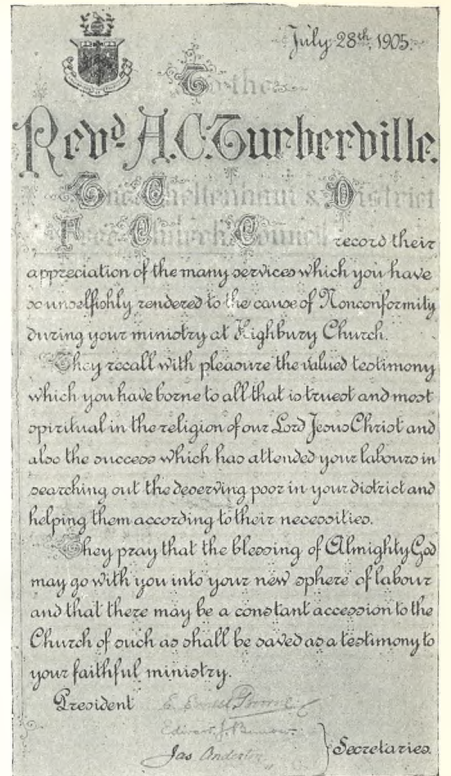 July 28th, 1905.
To the
Revd. A.C. Turberville.
The Cheltenham & District
Free Church Council record their
appreciation of the many services which you have
so unselfishly rendered to the cause of Nonconformity
during your ministry at Highbury Church.
They recall with pleasure the valued testimony
which you have borne to all that is truest and most
spiritual in the religion of our Lord Jesus Christ and
also the success which has attended your labours in
searching out the deserving poor in your district and
helping them according to their necessities.
They pray that the blessing of Almighty God
may go with you into your new sphere of labour
and that there may be a constant accession to the
Church of such as shall be saved as a testimony to
your faithful ministry.
President
Jas Anderton
Secretaries.